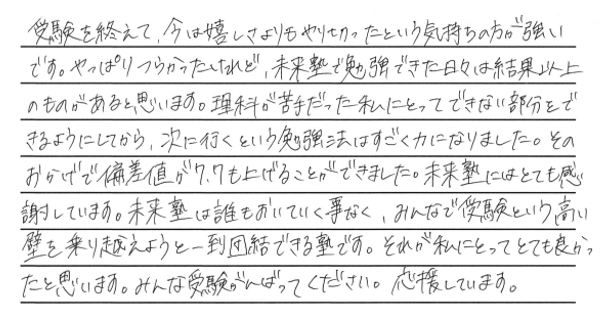 受験を終えて、今は嬉しさよりもやりきったという気持ちの方が強い
です。やっぱりつらかったけれど、未来塾で勉強できた日々は結果以上
のものがあると思います。理科が苦手だった私にとってできない部分をで
きるようにしてから、次に行くという勉強法はすごく力になりました。その
おかげで偏差値が7.7も上げることができました。未来塾にはとても感
謝しています。未来塾は誰もおいていく事なく、みんなで受験という高い
壁を乗り越えようと一致団結できる塾です。それが私にとってとても良かっ
たと思います。みんな受験がんばってください。応援しています。